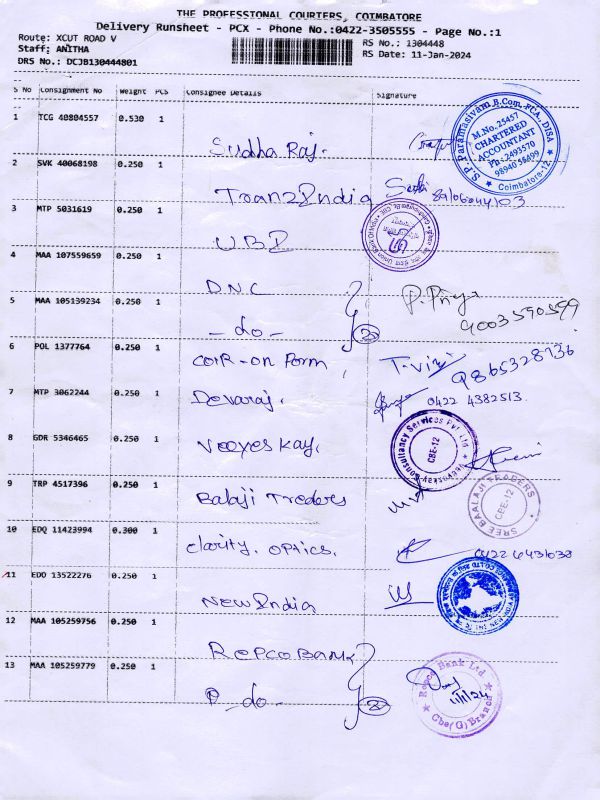 THE PROFESSIONAL COURIERS, COIMBATORE
Delivery Runsheet - PCX - Phone No.:0422-3505555 - Page No.:1
Route: XCUT ROAD V
RS No.: 1304448
Staff: ANITHA
RS Date: 11-Jan-2024
DRS No.: DCJB130444801
S No Consignment No Weight PCS Consignee Details Signature
1 TCG 40804557 0.530 1
Sudha Raj.
S.P. Paramasivam, B.Com, FCA, DISA
M.No. 25457
CHARTERED
ACCOUNTANT
PH: 2493570
98940 56899
Coimbatore-12
2 SVK 40068198 0.250 1
Tranz India
3 MTP 5031619 0.250 1
UBI
4 MAA 107559659 0.250 1
DNC
5 MAA 105139234 0.250 1
- do -
2
P. Priya
9003590599
6 POL 1377764 0.250 1
COIR-on Form
9865328736
7 MTP 3062244 0.250 1
Devaraj.
0422 4382513
8 GDR 5346465 0.250 1
Veeyes Kay.
Consultancy Services Pvt Ltd
CBE-12
9 TRP 4517396 0.250 1
Balaji Traders
SREE BAALAJI TRADERS
CBE-12
10 EDQ 11423994 0.300 1
Clarity. Optics.
11 EDO 13522276 0.250 1
New India
12 MAA 105259756 0.250 1
REPCO BANK
13 MAA 105259779 0.250 1
- do -
2
Repco Bank Ltd.
11/1/24
Cbe(G) Branch